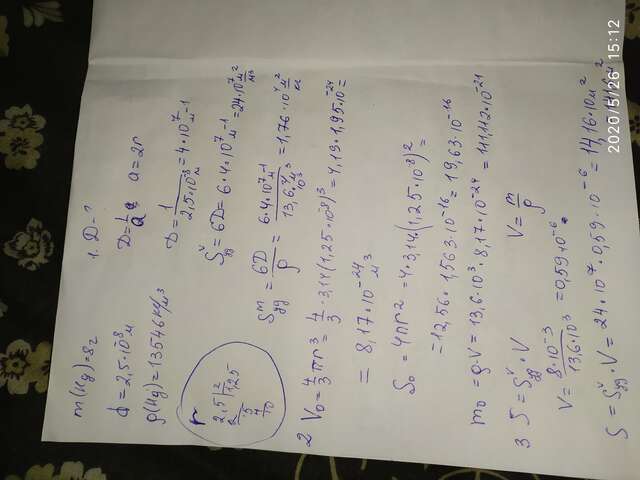 m(Hg)=8г
d=2,5·10⁻⁸м
ρ(Hg)=13546кг/м³
r
2,5|2
2 1,25
5
4
10
1. D-?
D=1/a a=2r
D=1/2,5·10⁻⁸м=4·10⁷м⁻¹
Sᵛуд=6D=6·4·10⁷м⁻¹=24·10⁷м²/м³
Sᵐуд=6D/ρ=6·4·10⁷м⁻¹/13,6·10³=1,76·10⁴м²/кг
2 V₀=4/3πr³=4/3·3,14(1,25·10⁻⁸)³=4,19·1,95·10⁻²⁴=
=8,17·10⁻²⁴м³
S₀=4πr²=4·3,14·(1,25·10⁻⁸)²=
=12,56·1,563·10⁻¹⁶=19,63·10⁻¹⁶
m₀=ρ·V=13,6·10³·8,17·10⁻²⁴=111,112·10⁻²¹
3 S=Sᵛуд·V V=m/ρ
V=8·10⁻³/13,6·10³=0,59·10⁻⁶
S=Sᵛуд·V=24·10⁷·0,59·10⁻⁶=14,16·10м²
2020/5/26 15:12